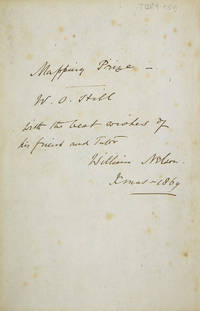 Mapping Prize —
W. O. Hill
With the best wishes of
his friend and Tutor
William
Xmas – 1869